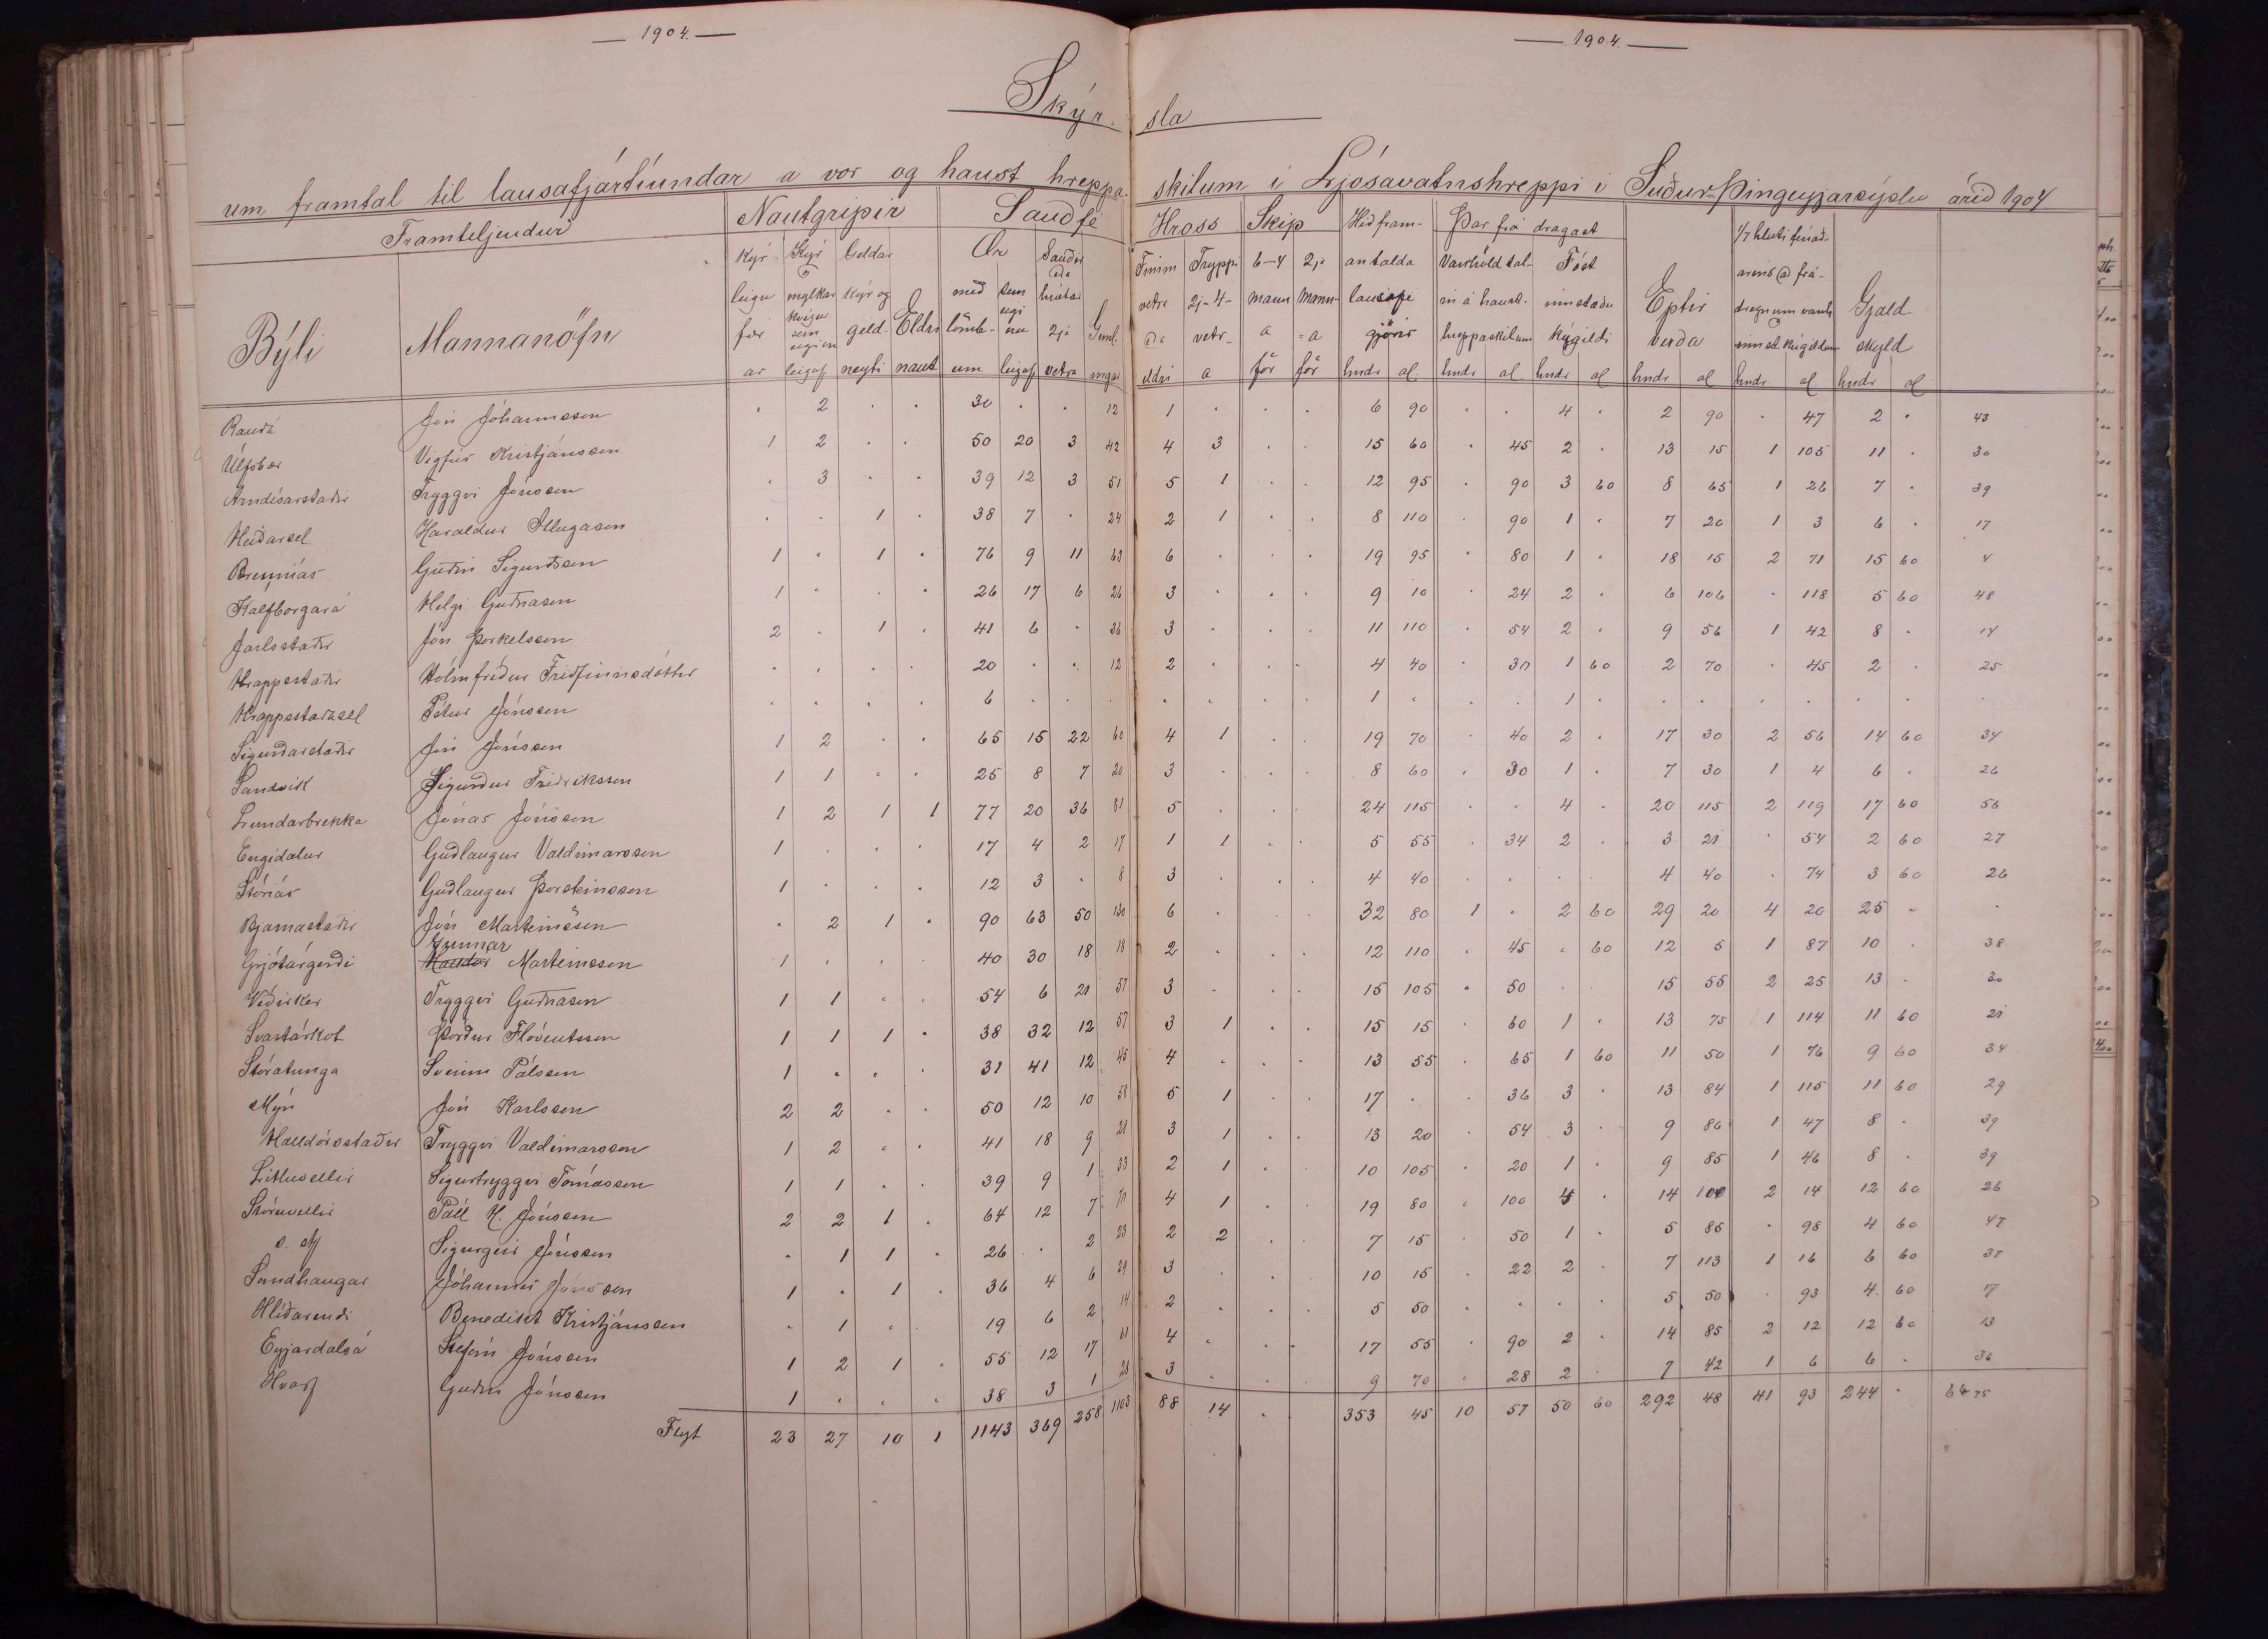 1904.
1904.
Skýrsla
um framtal til lausafjártíundar a vor og haust hreppa- skilum i Ljósavatnshreppi i Suður-Þingeyjarsýslu árið 1904
Framteljendur Nautgripir Sauðfé Hross Skip Hið fram- Þar frá dragast
Býli Mannanöfn Eptir verða Gjald skyld
Rauðá Jón Jóhannesson . 2 . . 30 . . 12 1 . . . 6 90 . . 4 . 2 90 . 47 2 . 43
Úlfsbær Vigfús Kristjánsson 1 2 . . 50 20 3 42 4 3 . . 15 60 . 45 2 . 13 15 1 105 11 . 30
Arndísarstaðir Tryggvi Jónsson . 3 . . 39 12 3 51 5 1 . . 12 95 . 90 3 60 8 65 1 26 7 . 39
Heiðarsel Haraldur Illugason . . 1 . 38 7 . 24 2 1 . . 8 110 . 90 1 . 7 20 1 3 6 . 17
Brenniás Guðni Sigurðsson 1 . 1 . 76 9 11 63 6 . . . 19 95 . 80 1 . 18 15 2 71 15 60 4
Kalfborgará Helgi Guðnason 1 . . . 26 17 6 26 3 . . . 9 10 . 24 2 . 6 106 . 118 5 60 48
Jarlsstaðir Jón Þorkelsson 2 . 1 . 41 6 . 36 3 . . . 11 110 . 54 2 . 9 56 1 42 8 . 14
Hrappsstaðir Hólmfríður Friðfinnsdóttir . . . . 20 . . 12 2 . . . 4 40 . 30 1 60 2 70 . 45 2 . 25
Hrappstaðasel Pétur Jónsson . . . . 6 . . . . . . . 1 . . . 1 . . . . . . . .
Sigurðarstaðir Jón Jónsson 1 2 . . 65 15 22 60 4 1 . . 19 70 . 40 2 . 17 30 2 56 14 60 34
Sandvik Sigurður Friðriksson 1 1 . . 25 8 7 20 3 . . . 8 60 . 30 1 . 7 30 1 4 6 . 26
Lundarbrekka Jónas Jónsson 1 2 1 1 77 20 36 81 5 . . . 24 115 . . 4 . 20 115 2 119 17 60 56
Engidalur Guðlaugur Valdimarsson 1 . . . 17 4 2 17 1 1 . . 5 55 . 34 2 . 3 21 . 54 2 60 27
Stóriás Guðlaugur Þorsteinsson 1 . . . 12 3 . 8 3 . . . 4 40 . . . . 4 40 . 74 3 60 26
Bjarnastaðir Jón Marteinsson . 2 1 . 90 63 50 130 6 . . . 32 80 1 . 2 60 29 20 4 20 25 . .
Grjótárgerði Gunnar Marteinsson 1 . . . 40 30 18 18 2 . . . 12 110 . 45 . 60 12 5 1 87 10 . 38
Víðirker Tryggvi Guðnason 1 1 . . 54 6 21 57 3 . . . 15 105 . 50 . . 15 55 2 25 13 . 30
Svartárkot Þórður Flóventsson 1 1 1 . 38 32 12 57 3 1 . . 15 15 . 60 1 . 13 75 1 114 11 60 21
Stóratunga Sveinn Pálsson 1 . . . 31 41 12 45 4 . . . 13 55 . 65 1 60 11 50 1 76 9 60 34
Mýri Jón Karlsson 2 2 . . 50 12 10 58 5 1 . . 17 . . 36 3 . 13 84 1 115 11 60 29
Halldórsstaðir Tryggvi Valdimarsson 1 2 . . 41 18 9 28 3 1 . . 13 20 . 54 3 . 9 86 1 47 8 . 39
Litluvellir Sigurtryggvi Tómasson 1 1 . . 39 9 1 33 2 1 . . 10 105 . 20 1 . 9 85 1 46 8 . 39
Stóruvellir Páll H. Jónsson 2 2 1 . 64 12 7 70 4 1 . . 19 80 . 100 4 . 14 100 2 14 12 60 26
s. st. Sigurgeir Jónsson . 1 1 . 26 . 2 23 2 2 . . 7 15 . 50 1 . 5 85 . 98 4 60 47
Sandhaugar Jóhannes Jónsson 1 . 1 . 36 4 6 29 3 . . . 10 15 . 22 2 . 7 113 1 16 6 60 37
Hlíðarendi Benedikt Kristjánsson . 1 . . 19 6 2 14 2 . . . 5 50 . . . . 5 50 . 93 4 60 17
Eyjardalsá Stefán Jónsson 1 2 1 . 55 12 17 61 4 . . . 17 55 . 90 2 . 14 85 2 12 12 60 13
Hvarf Guðni Jónsson 1 . . . 38 3 1 28 3 . . . 9 70 . 28 2 . 7 42 1 6 6 . 36
Flyt 23 27 10 1 1143 369 258 1103 88 14 . 353 45 10 57 50 60 292 48 41 93 244 . 64 75